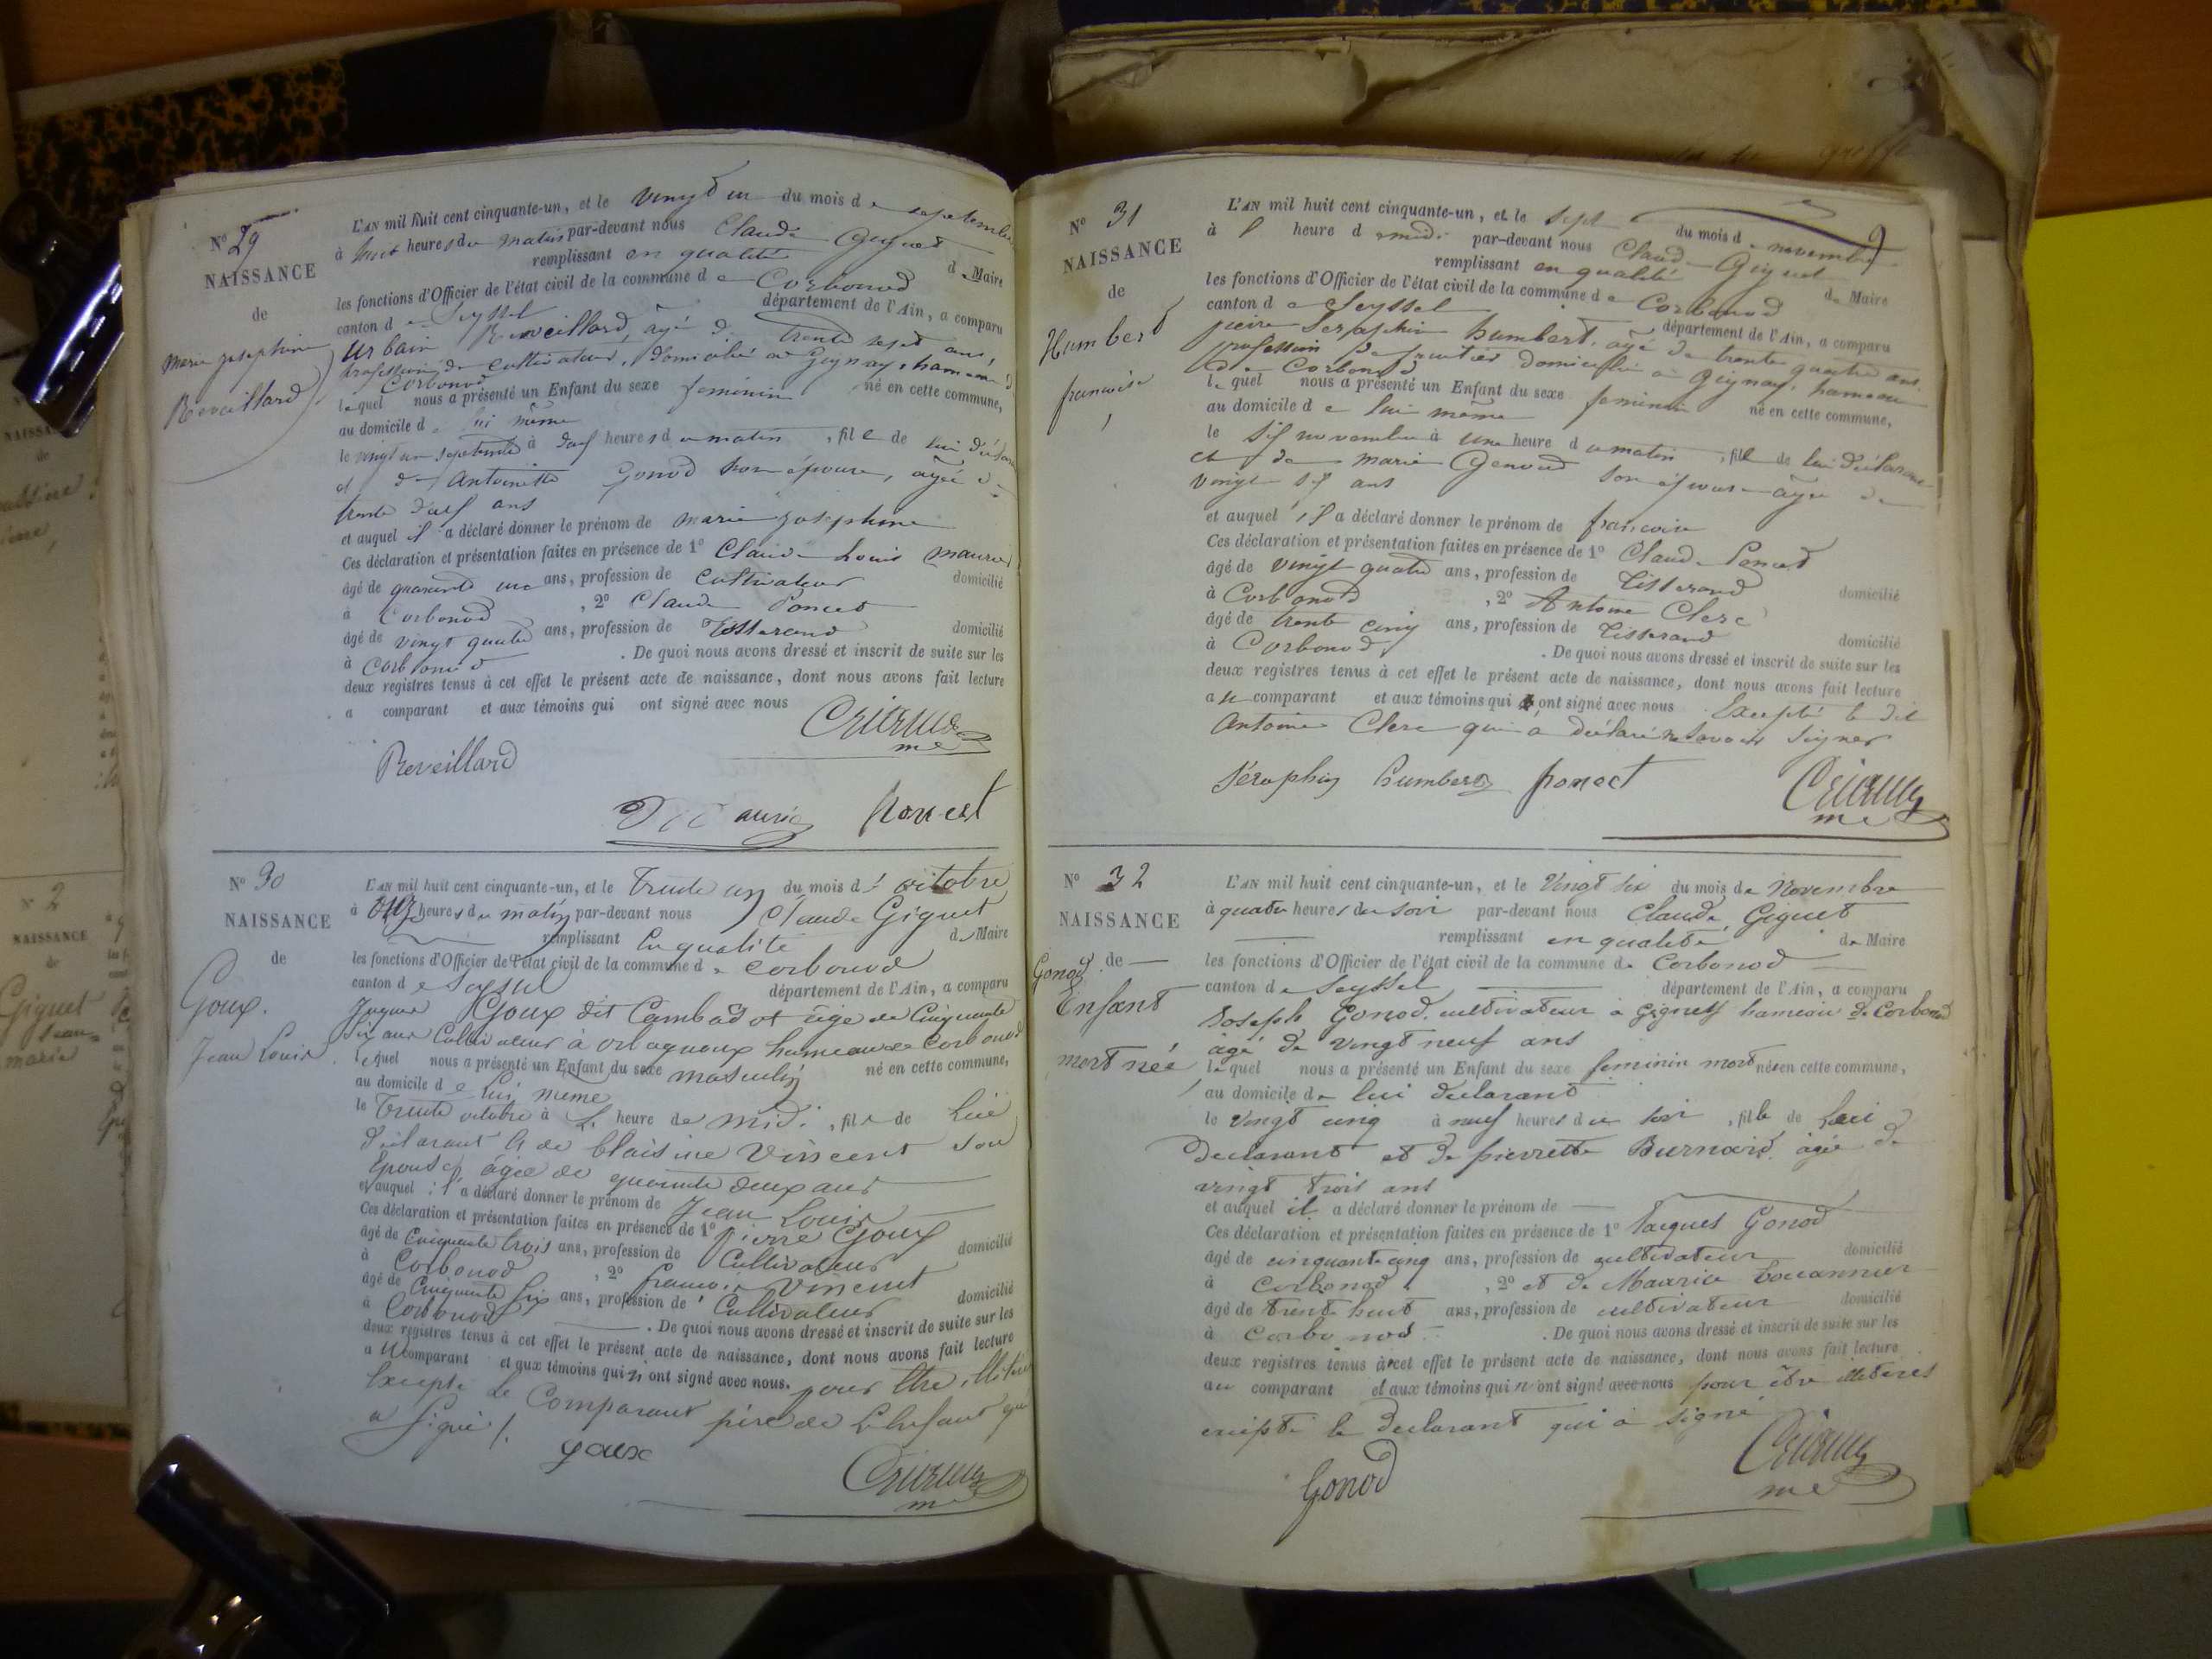 N° 29
NAISSANCE
de
marie josephine
Reveillard
L'AN mil huit cent cinquante-un, et le vingt un du mois de septembre
à huit heures du matin par-devant nous Claude Giguet
remplissant en qualité de Maire
les fonctions d'Officier de l'état civil de la commune de Corbonod
canton de Seyssel département de l'Ain, a comparu
Urbain Reveillard, âgé de trente sept ans,
profession de cultivateur, domicilié à Gignay, hameau de
Corbonod
lequel nous a présenté un Enfant du sexe feminin né en cette commune,
au domicile de lui même
le vingt un septembre à heures du matin , fille de lui déclarant
et de Antoinette Gonod son épouse, âgée de
trente ans
et auquel il a déclaré donner le prénom de marie josephine
Ces déclaration et présentation faites en présence de 1° Claude Louis maurier
âgé de quarante un ans, profession de Cultivateur domicilié
à Corbonod , 2° Claude Poncet
âgé de vingt quatre ans, profession de Tisserand domicilié
à Corbonod . De quoi nous avons dressé et inscrit de suite sur les
deux registres tenus à cet effet le présent acte de naissance, dont nous avons fait lecture
a comparant et aux témoins qui ont signé avec nous
Reveillard
Poncet
N° 30
NAISSANCE
de
Goux.
Jean Louis
L'AN mil huit cent cinquante-un, et le Trente un du mois d'octobre
à onze heures du matin par-devant nous Claude Giguet
remplissant en qualité de Maire
les fonctions d'Officier de l'état civil de la commune de Corbonod
canton de Seyssel département de l'Ain, a comparu
Goux dit Cambadot âgé de Cinquante
six ans Cultivateur à hameau de Corbonod
lequel nous a présenté un Enfant du sexe masculin né en cette commune,
au domicile de Lui meme
le Trente octobre à heure de midi , fils de Lui
déclarant & de blaisine Vincent son
Epouse, âgée de quarante deux ans
et auquel il a déclaré donner le prénom de Jean Louis
Ces déclaration et présentation faites en présence de 1° Pierre Goux
âgé de Cinquante trois ans, profession de Cultivateur domicilié
à Corbonod , 2° françois Vincent
âgé de Cinquante six ans, profession de Cultivateur domicilié
à Corbonod . De quoi nous avons dressé et inscrit de suite sur les
deux registres tenus à cet effet le présent acte de naissance, dont nous avons fait lecture
au comparant et aux témoins qui n'ont signé avec nous. pour être
Excepté le Comparant père de L'Enfant qui
a signé /.
goux
N° 31
NAISSANCE
de
Humbert
francoise
9
L'AN mil huit cent cinquante-un, et le sept du mois de novembre
à 1 heure de midi par-devant nous Claude Giguet
remplissant en qualité de Maire
les fonctions d'Officier de l'état civil de la commune de Corbonod
canton de Seyssel département de l'Ain, a comparu
pierre Seraphin humbert, âgé de trente quatre ans,
profession de fruitier domicilié à Gignay, hameau
de Corbonod
lequel nous a présenté un Enfant du sexe feminin né en cette commune,
au domicile de lui même
le six novembre à une heure du matin , fille de lui déclarant
et de marie Genoud son épouse âgée de
vingt six ans
et auquel il a déclaré donner le prénom de francoise
Ces déclaration et présentation faites en présence de 1° Claude Poncet
âgé de vingt quatre ans, profession de Tisserand domicilié
à Corbonod , 2° Antoine Clerc
âgé de trente cinq ans, profession de Tisserand domicilié
à Corbonod, . De quoi nous avons dressé et inscrit de suite sur les
deux registres tenus à cet effet le présent acte de naissance, dont nous avons fait lecture
au comparant et aux témoins qui ont signé avec nous Excepté le dit
Antoine Clerc qui a déclaré ne savoir signer
Séraphin humbert ponect
N° 32
NAISSANCE
de
Gonod
Enfant
mort née
L'AN mil huit cent cinquante-un, et le Vingt six du mois de Novembre
à quatre heures du soir par-devant nous Claude Giguet
remplissant en qualité de Maire
les fonctions d'Officier de l'état civil de la commune de Corbonod
canton de Seyssel département de l'Ain, a comparu
Joseph Gonod, cultivateur à hameau de Corbonod
âgé de vingt neuf ans
lequel nous a présenté un Enfant du sexe feminin mort née en cette commune,
au domicile de lui declarant
le Vingt cinq à neuf heures du soir , fille de Lui
declarant et de pierrette Burnard, âgée de
vingt trois ans
et auquel il a déclaré donner le prénom de
Ces déclaration et présentation faites en présence de 1° Jacques Gonod
âgé de cinquante cinq ans, profession de cultivateur domicilié
à Corbonod , 2° et de Maurice
âgé de trente huit ans, profession de cultivateur domicilié
à Corbonod . De quoi nous avons dressé et inscrit de suite sur les
deux registres tenus à cet effet le présent acte de naissance, dont nous avons fait lecture
au comparant et aux témoins qui n'ont signé avec nous pour être illetirés
excepté le declarant qui a signé
Gonod
N° 2
NAISSANCE
de
Giguet
Jean
marie